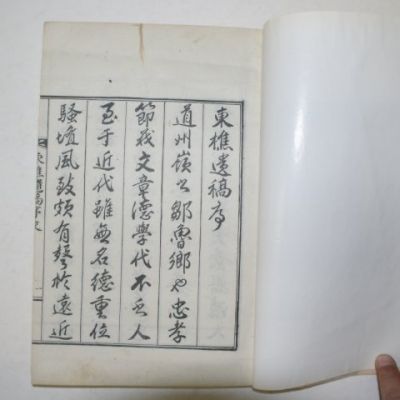 東樵遺稿序
道州嶺之鄒魯鄉也忠孝
節義文章德學代不乏人
至于近代雖無名德重位
騷壇風致頗有聲於遠近
東樵遺稿序文